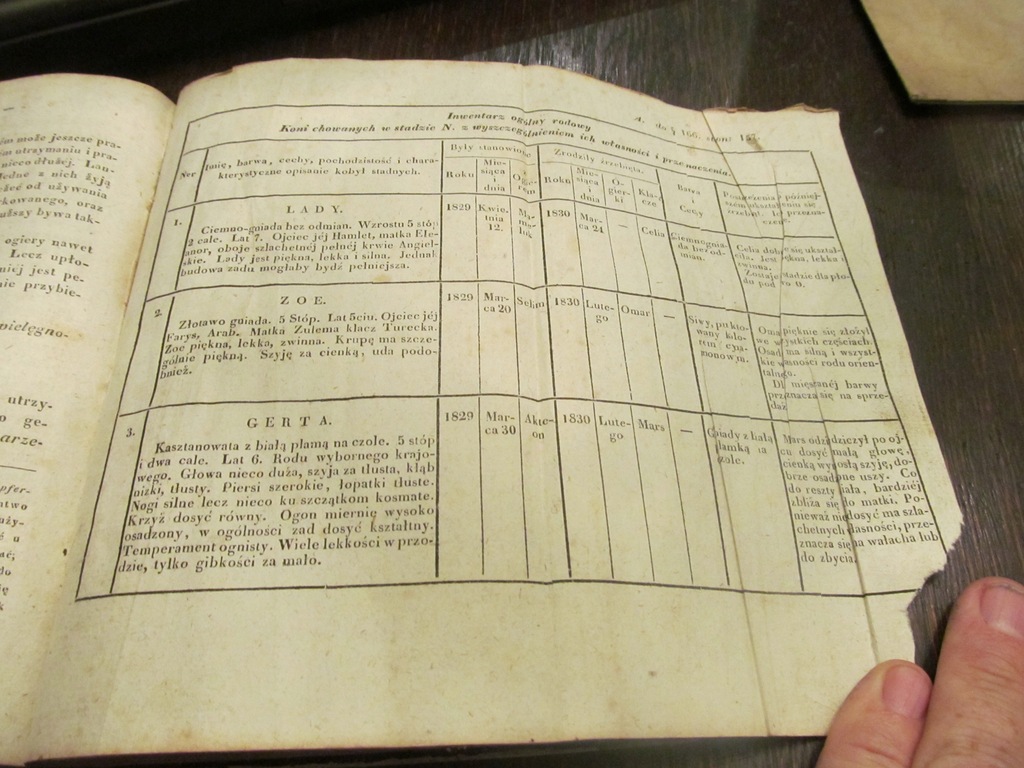 —
ém może jeszcze pra-
ém otrzymaniu i pra-
nieco dłużéj. Lan-
edne z nich żyją
zéć od używania
rkowanego, oraz
uższy bywa tak-
ogiery nawet
Lecz upło-
niej jest pe-
nie przybie-
pielęgno-
utrzy-
o ge-
arze-
pfer-
atwo
uży-
u
ać;
do
ię
k
A. do § 166. stoni 157.
Inwentarz ogólny rodowy
Koni chowanych w stadzie N. z wyszczególnieniem ich własności i przeznaczenia.
Ner
Imię, barwa, cechy, pochodzistość i chara-
kterystyczne opisanie kobył stadnych.
Były stanowione
Roku
Mie-
siąca
i
dnia
Ogie-
rem
Zrodziły źrebięta.
Roku
Mie-
siąca
i
dnia
O-
gier-
ki
Kla-
cze
Barwa
i
Cechy
1.
LADY.
Ciemno-gniada bez odmian. Wzrostu 5 stóp
2 cale. Lat 7. Ojciec jéj Hamlet, matka Ele-
anor, oboje szlachetnéj pełnéj krwie Angiel-
skie. Lady jest piękna, lekka i silna. Jednak
budowa zadu mogłaby bydź pełniejsza.
1829
Kwie-
tnia
12.
Ma-
me-
luk
1830
Mar-
ca 24
—
Celia
Ciemnognia-
da bez od-
mian.
Celia dobrze się ukształ-
ciła. Jest piękna, lekka i
zwinna.
Zostaje w stadzie dla pło-
du pod
2.
ZOE.
Złotawo gniada. 5 Stóp. Lat 5ciu. Ojciec jéj
Farys, Arab. Matka Zulema klacz Turecka.
Zoe piękna, lekka, zwinna. Krupę ma szcze-
gólnie piękną. Szyję za cienką, uda podo-
bnież.
1829
Mar-
ca 20
Selim
1830
Lute-
go
Omar
—
Siwy,
Omar pięknie się złożył
we wszystkich częściach.
Osada ma silną i wszyst-
kie własności rodu orien-
talnego.
Dla mięszanéj barwy
przeznacza się na sprze-
daż
3.
GERTA.
Kasztanowata z białą plamą na czole. 5 stóp
i dwa cale. Lat 6. Rodu wybornego krajo-
wego. Głowa nieco duża, szyja za tłusta, kłąb
nizki, tłusty. Piersi szerokie, łopatki tłuste.
Nogi silne lecz nieco ku szczątkom kosmate.
Krzyż dosyć równy. Ogon miernie wysoko
osadzony, w ogólności zad dosyć kształtny.
Temperament ognisty. Wiele lekkości w przo-
dzie, tylko gibkości za mało.
1829
Mar-
ca 30
Akte-
on
1830
Lute-
go
Mars
—
Gniady z białą
plamką na
czole.
Mars odziedziczył po oj-
cu dosyć małą głowę,
cienką wyrosłą szyję, do-
brze osadzone uszy. Co
do reszty ciała, bardziéj
zbliża się do matki. Po-
nieważ niedosyć ma szla-
chetnych własności, prze-
znacza się na wałacha lub
do zbycia.